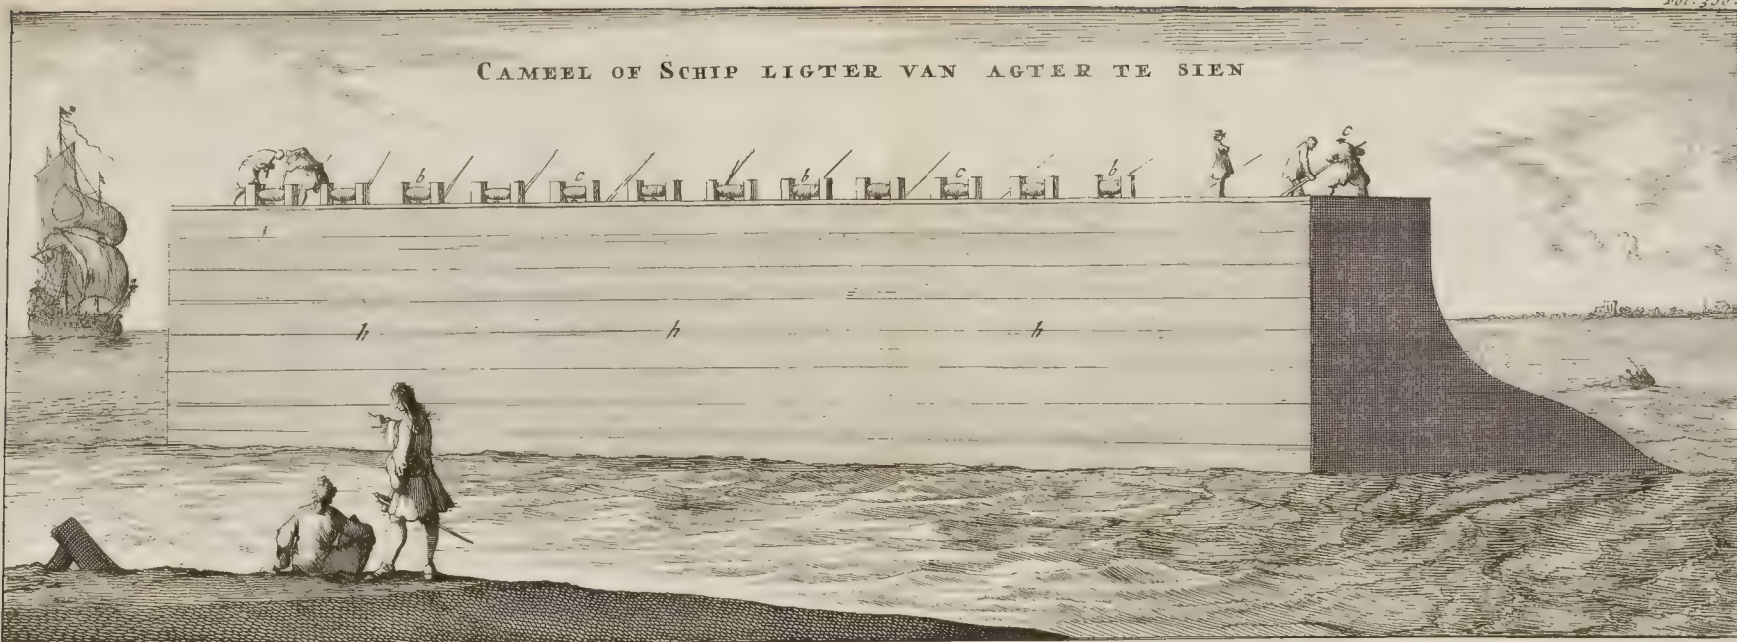 CAMEEL OF SCHIP LIGTER VAN AGTER TE SIEN
c
b c b c b
h h h